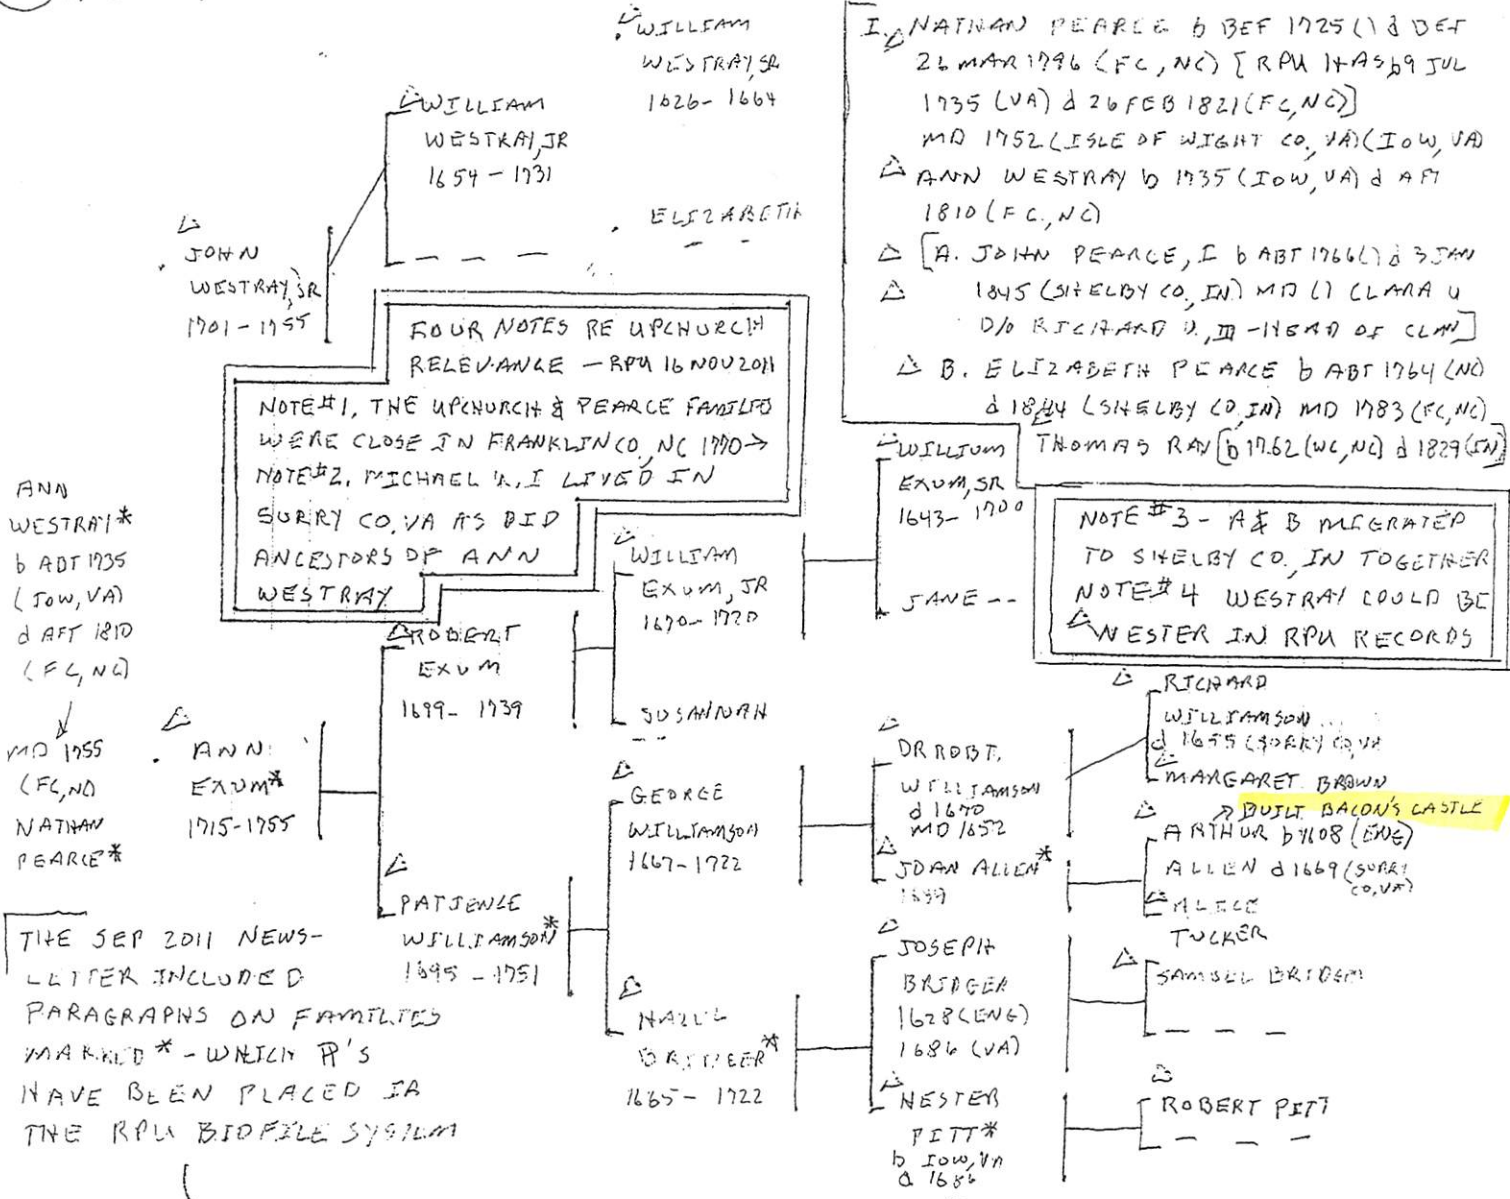 WILLIAM
WESTRAY, SR
1626- 1664
WILLIAM
WESTRAY, JR
1654 - 1731
ELIZABETH
JOHN
WESTRAY, SR
1701 - 1755
I. NATHAN PEARCE b BEF 1725 () d BEF
26 MAR 1796 (FC, NC) [RPU HAS b 9 JUL
1735 (VA) d 26 FEB 1821 (FC, NC)]
MD 1752 (ISLE OF WIGHT CO., VA) (IOW, VA)
ANN WESTRAY b 1735 (IOW, VA) d AFT
1810 (FC., NC)
[A. JOHN PEARCE, I b ABT 1766 () d 3 JAN
1845 (SHELBY CO., IN) MD () CLARA U
D/O RICHARD U., III - HEAD OF CLAN]
B. ELIZABETH PEARCE b ABT 1764 (NC)
d 1844 (SHELBY CO, IN) MD 1783 (FC, NC)
THOMAS RAY [b 1762 (WC, NC) d 1829 (IN)]
FOUR NOTES RE UPCHURCH
RELEVANCE - RPU 16 NOV 2011
NOTE #1, THE UPCHURCH & PEARCE FAMILIES
WERE CLOSE IN FRANKLIN CO., NC 1770 →
NOTE #2, MICHAEL U., I LIVED IN
SURRY CO, VA AS DID
ANCESTORS OF ANN
WESTRAY
NOTE #3 - A & B MIGRATED
TO SHELBY CO., IN TOGETHER
NOTE #4 WESTRAY COULD BE
WESTER IN RPU RECORDS
ANN
WESTRAY*
b ABT 1735
(IOW, VA)
d AFT 1810
(FC, NC)
MD 1755
(FC, NC)
NATHAN
PEARCE*
ANN
EXUM*
1715-1755
ROBERT
EXUM
1699- 1739
PATIENCE
WILLIAMSON*
1695 - 1751
WILLIAM
EXUM, JR
1670- 1720
SUSANNAH
WILLIUM
EXUM, SR
1643- 1700
JANE --
GEORGE
WILLIAMSON
1667-1722
DR ROBT.
WILLIAMSON
d 1670
MD 1652
JOAN ALLEN*
RICHARD
WILLIAMSON
d 1655 (SURRY CO, VA
MARGARET BROWN
→ BUILT BACON'S CASTLE
ARTHUR b 1608 (ENG)
ALLEN d 1669 (SURRY
CO, VA)
ALICE
TUCKER
BRIDGER*
1665- 1722
JOSEPH
BRIDGER
1628 (ENG)
1686 (VA)
HESTER
PITT*
b IOW, VA
d 1686
SAMUEL BRIDGER
ROBERT PITT
THE SEP 2011 NEWS-
LETTER INCLUDED
PARAGRAPHS ON FAMILIES
MARKED * - WHICH ¶'S
HAVE BEEN PLACED IN
THE RPU BIOFILE SYSTEM